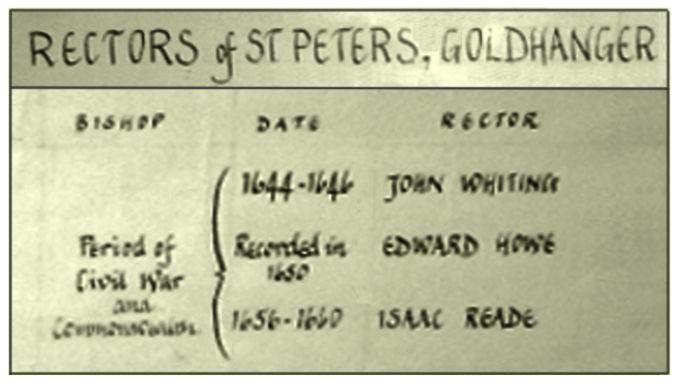 RECTORS of ST PETERS, GOLDHANGER
BISHOP DATE RECTOR
1644-1646 JOHN WHITING
Period of Civil War and Commonwealth
Recorded in 1650 EDWARD HOWE
1656-1660 ISAAC READE